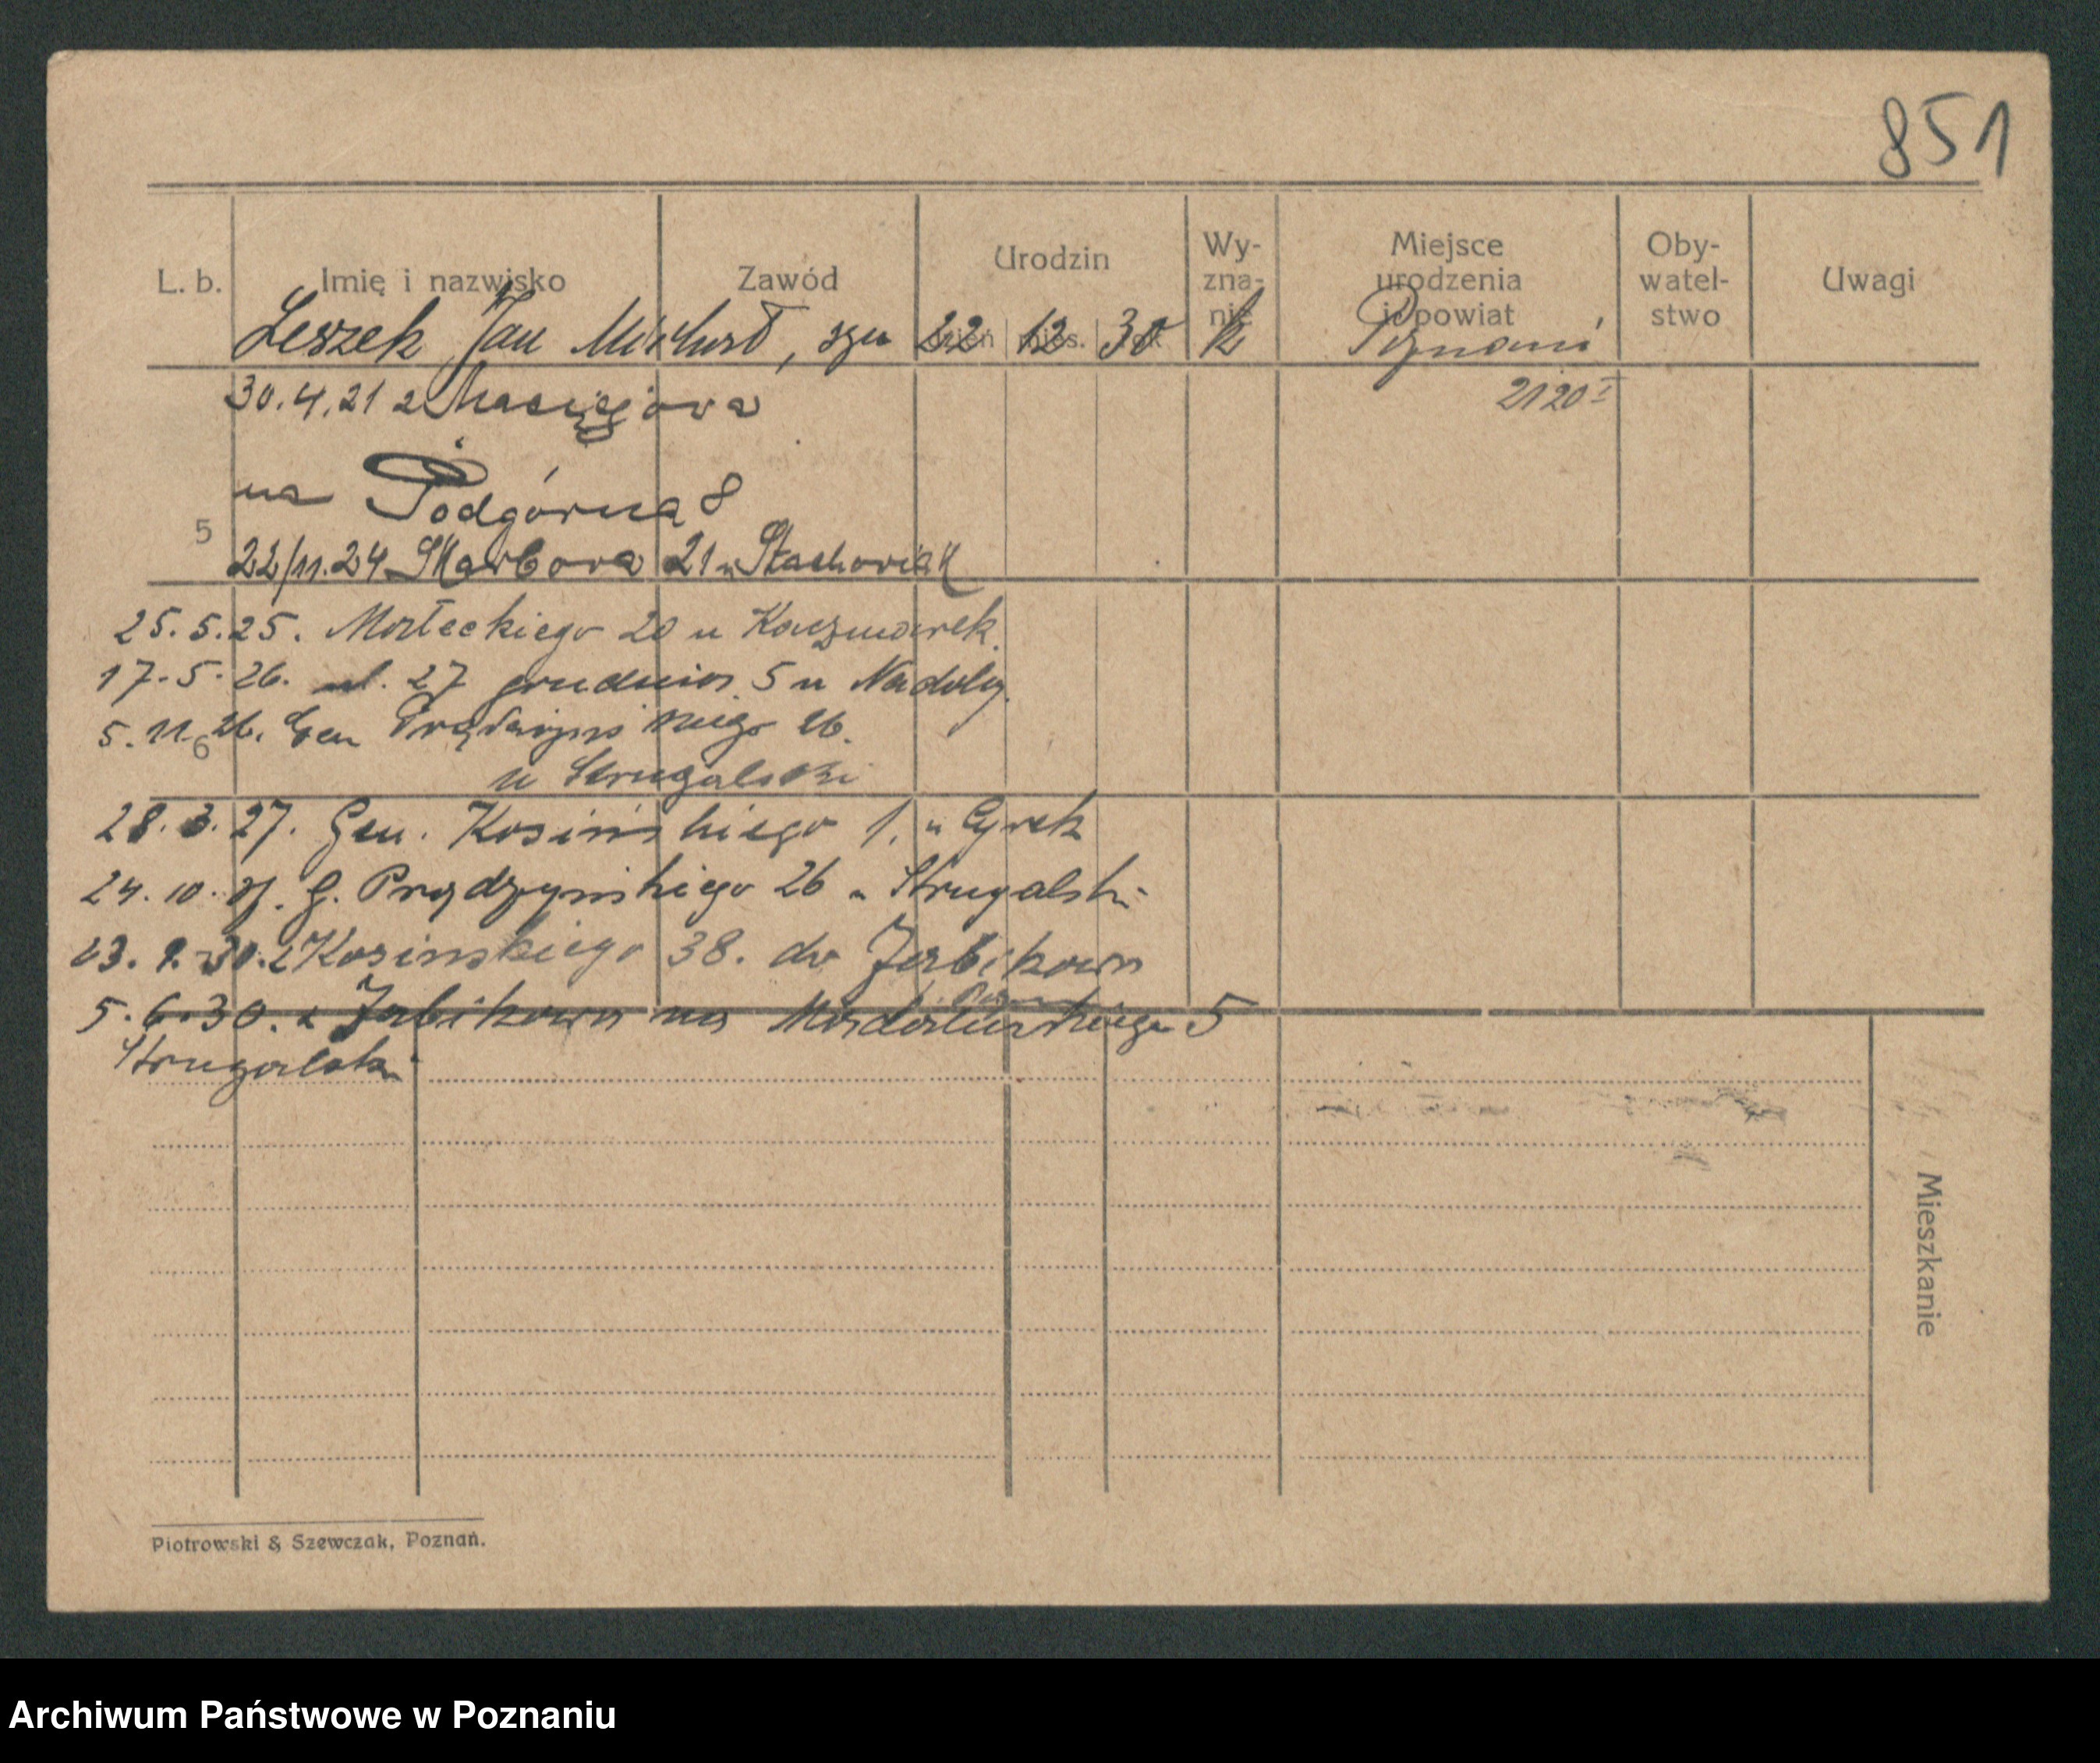 851
L. b. Imię i nazwisko Zawód Urodzin Wy-zna-nie Miejsce urodzenia i powiat Oby-watel-stwo Uwagi
dzień mies. rok
Leszek Jan, syn 22 12 30 k Poznań
30.4.21 z 2120 I
na Podgórna 8
5
22/11.24 Skarbova 21 u Stachoviak
25.5.25. Małeckiego 20 u Kaczmarek.
17.5.26. ul. 27 grudnia 5 u Nadolny.
5.11.26. Gen Prądzyńskiego 26.
6
u Strugalski
28.3.27. Gen. Kosińskiego 1. u Cyrek
24.10. G. Prądzyńskiego 26 u Strugalski
Kosinskiego 38. do Żabikowa
5.6.30. z Żabikowa na 5
Strugalski
Mieszkanie
Piotrowski & Szewczak, Poznań.
Archiwum Państwowe w Poznaniu